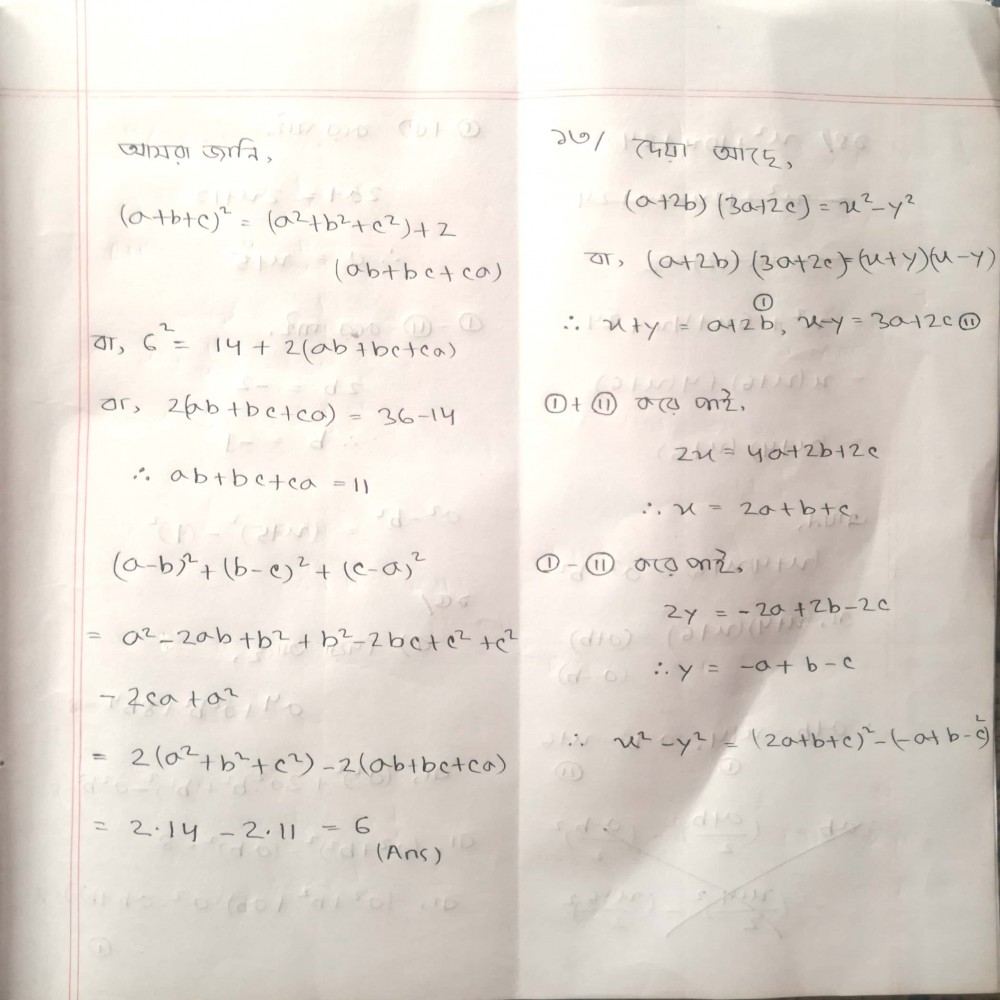 আমরা জানি,
(a+b+c)² = (a²+b²+c²)+2
(ab+bc+ca)
বা, 6² = 14 + 2(ab+bc+ca)
বা, 2(ab+bc+ca) = 36-14
∴ ab+bc+ca = 11
(a-b)²+(b-c)²+(c-a)²
= a²-2ab+b²+b²-2bc+c²+c²
-2ca+a²
= 2(a²+b²+c²)-2(ab+bc+ca)
= 2·14 - 2·11 = 6
(Ans)
১৩/ দেয়া আছে,
(a+2b)(3a+2c) = x²-y²
বা, (a+2b)(3a+2c)=(x+y)(x-y)
∴ x+y = a+2b, ① x-y = 3a+2c ⑪
① + ⑪ করে পাই,
2x = 4a+2b+2c
∴ x = 2a+b+c
① - ⑪ করে পাই,
2y = -2a+2b-2c
∴ y = -a+b-c
∴ x²-y² = (2a+b+c)²-(-a+b-c)²